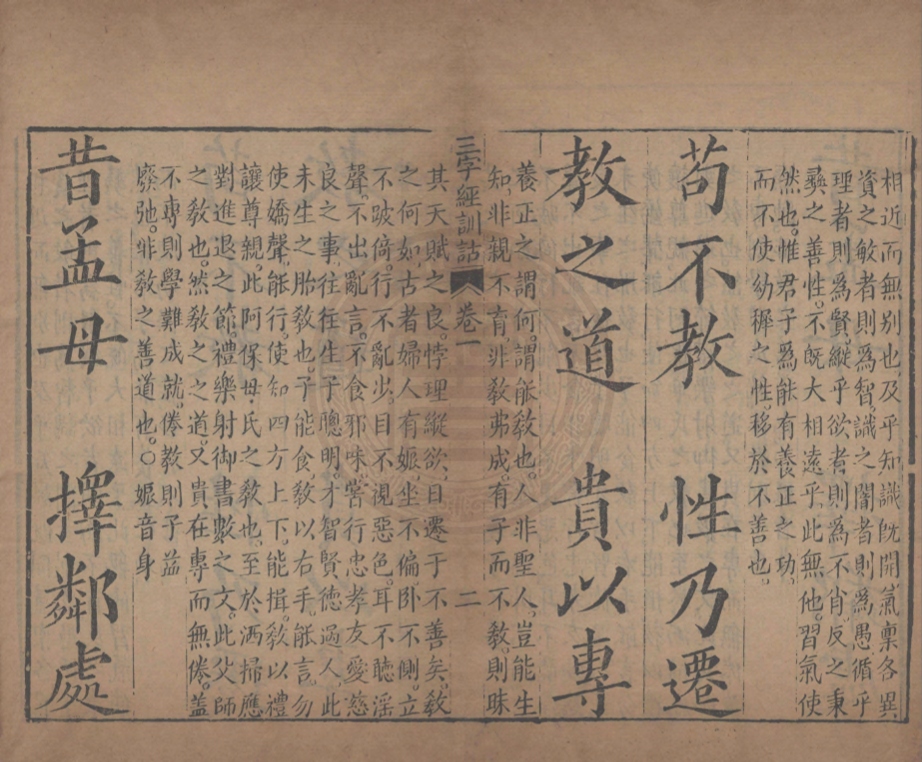 相近而無別也及乎知識旣開氣稟各異
資之敏者則爲智識之闇者則爲愚循乎
理者則爲賢縱乎欲者則爲不肖反之秉
彝之善性不旣大相遠乎此無他習氣使
然也惟君子爲能有養正之功
而不使幼穉之性移於不善也
苟不教 性乃遷
教之道 貴以專
養正之謂何謂能敎也人非聖人豈能生
知非親不育非敎弗成有子而不敎則昧
三字經訓詁 卷一 二
其天賦之良悖理縱欲日遷于不善矣敎
之何如古者婦人有娠坐不偏臥不側立
不跛倚行不亂步目不視惡色耳不聽淫
聲不出亂言不食邪味嘗行忠孝友愛慈
良之事往往生子聰明才智賢德過人此
未生之胎敎也子能食敎以右手能言勿
使嬌聲能行使知四方上下能揖敎以禮
讓尊親此阿保母氏之敎也至於洒掃應
對進退之節禮樂射御書數之文此父師
之敎也然敎之之道又貴在專而無倦蓋
不專則學難成就倦教則子益
廢弛非敎之善道也○娠音身
昔孟母 擇鄰處